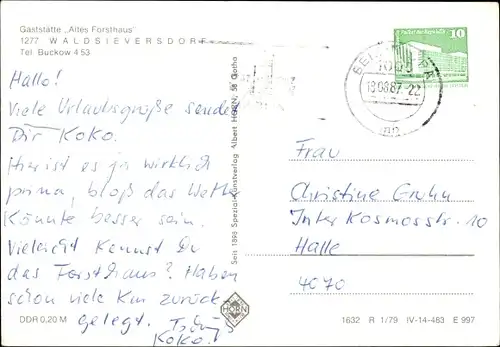 Gaststätte „Altes Forsthaus"
1277 WALDSIEVERSDORF
Tel. Buckow 4 53
Hallo!
Viele Urlaubsgrüße sendet
Dir Koko.
Hier ist es ja wirklich
prima, bloß das Wetter
könnte besser sein.
Vielleicht kennst Du
das Forsthaus? Haben
schon viele Km zurück
gelegt. Tschüß
Koko.
DDR 0,20 M
Seit 1898 Spezial-Kunstverlag Albert HORN, 58 Gotha
HORN
10
18.08.87-22
Frau
Christine Gruhn
Inter Kosmosstr. 10
Halle
4070
1632 R 1/79 IV-14-483 E 997